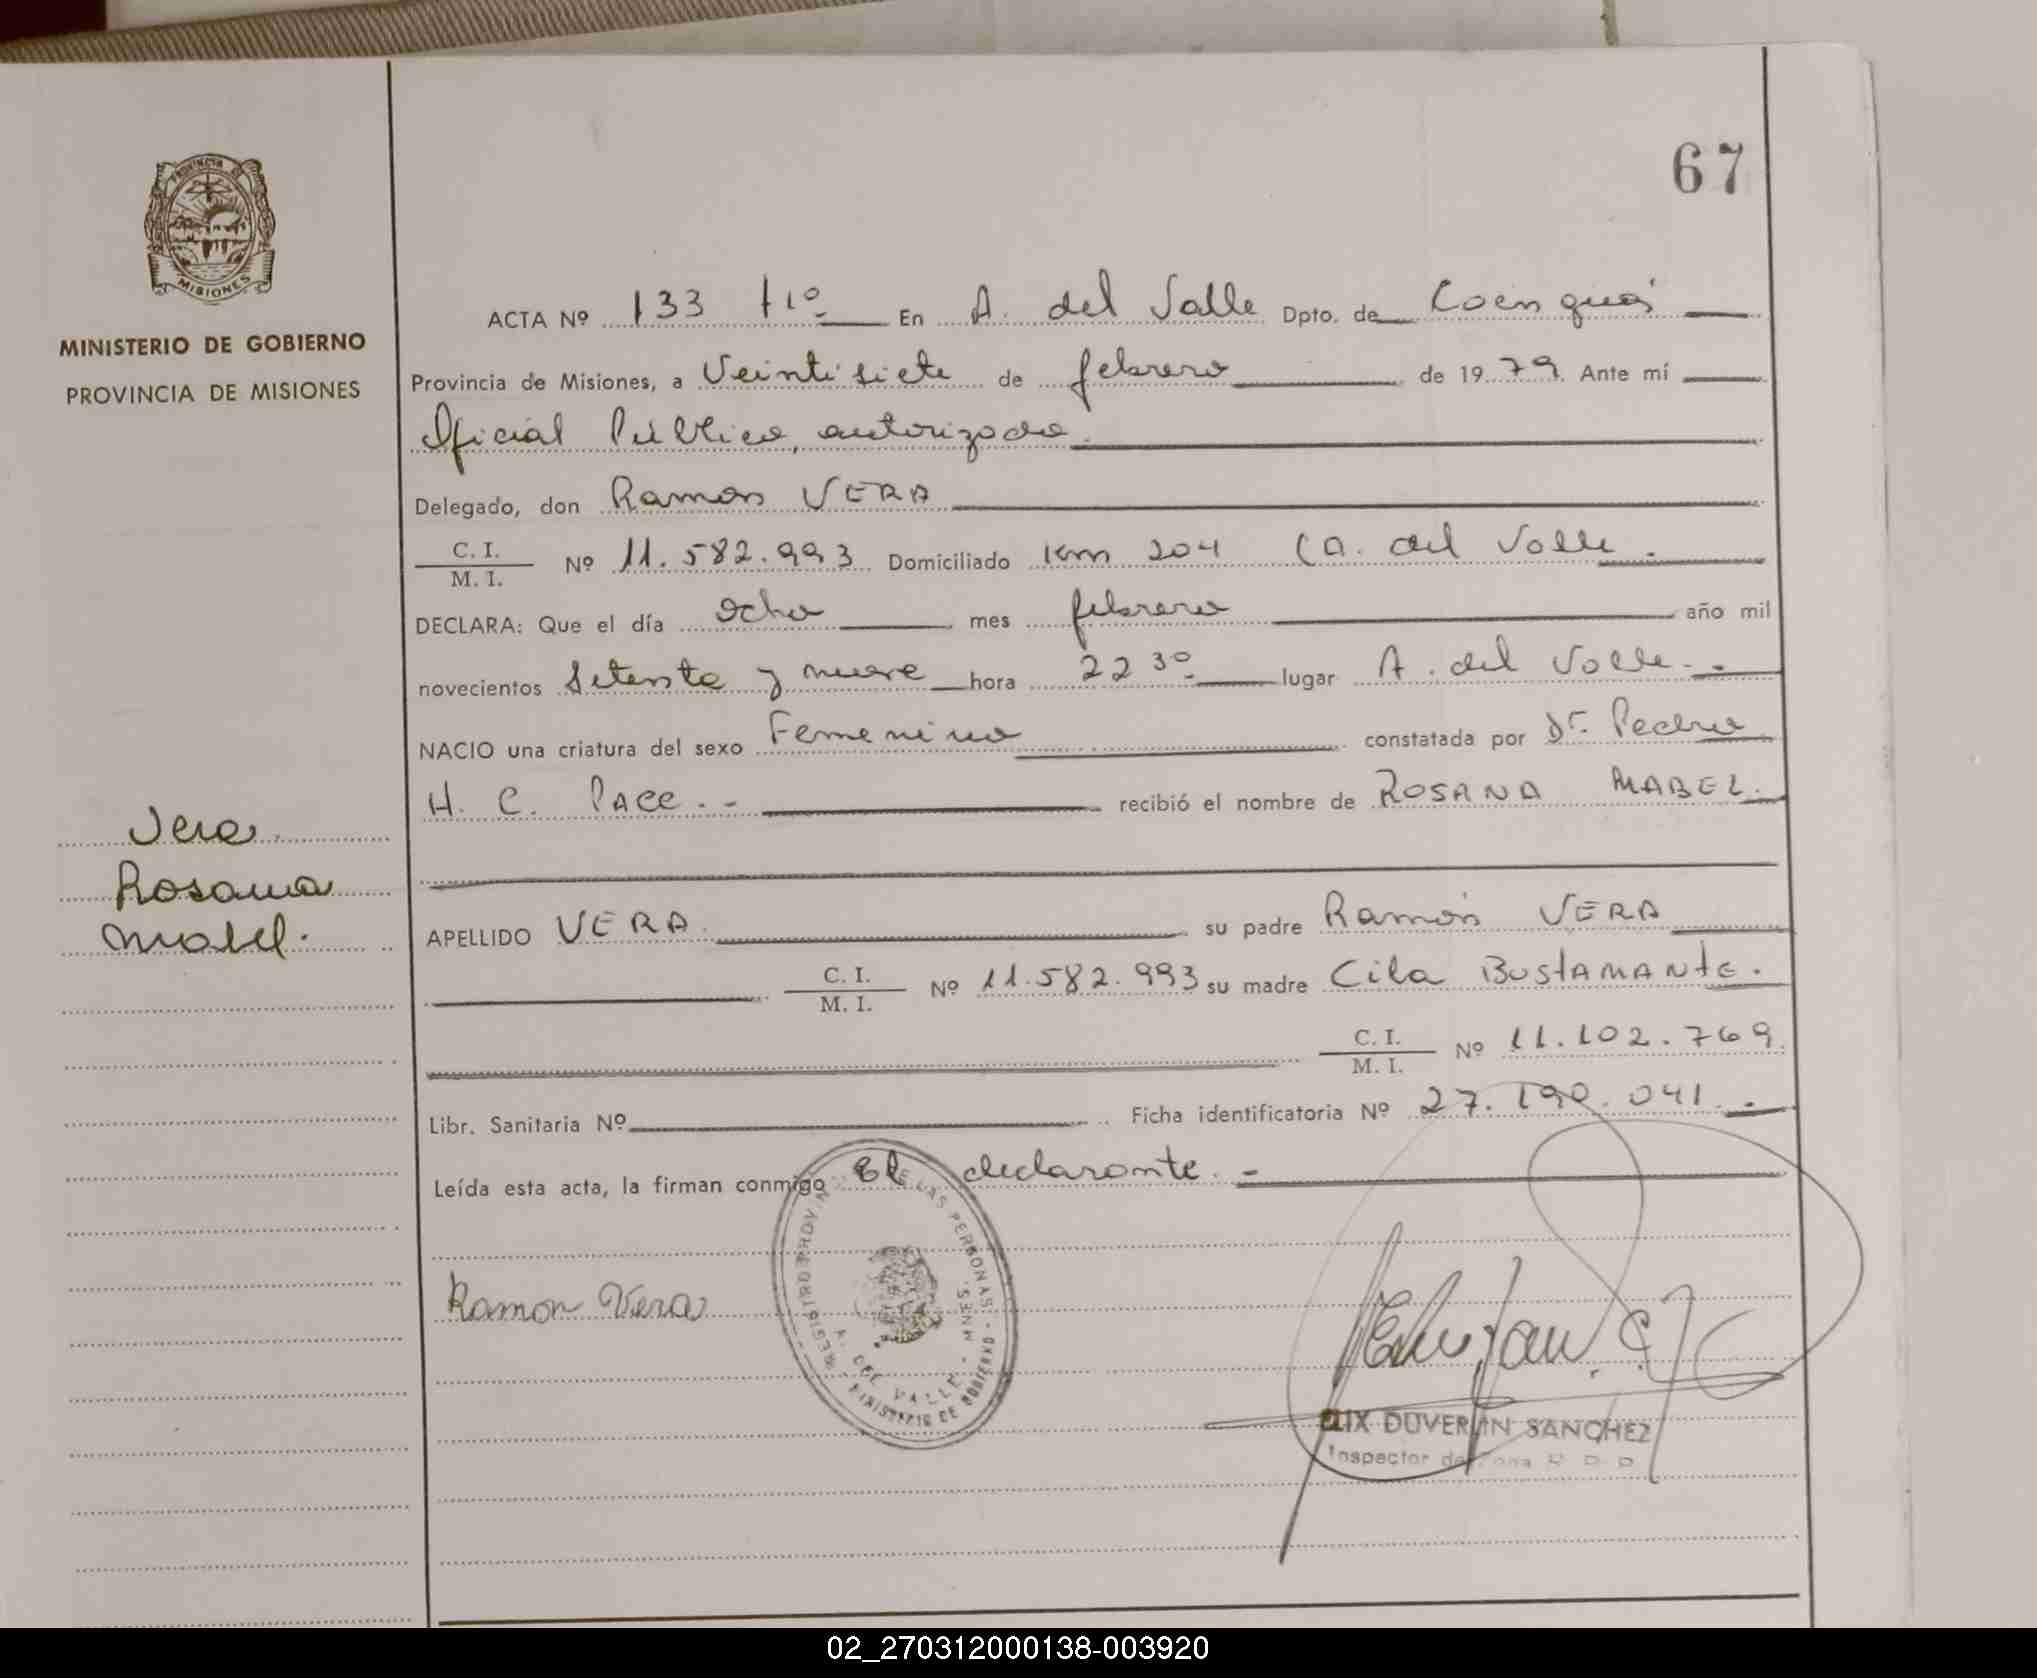 67
PROVINCIA DE
MISIONES
MINISTERIO DE GOBIERNO
PROVINCIA DE MISIONES
ACTA Nº 133 tº1 En A. del Valle Dpto. de Cainguás
Provincia de Misiones, a Veintisiete de febrero de 1979. Ante mí
Oficial Público autorizado.
Delegado, don Ramón VERA
C. I.
M. I.
Nº 11.582.993 Domiciliado Km 204 (A. del Valle.
DECLARA: Que el día ocho mes febrero año mil
novecientos Setenta y nueve hora 22 30 lugar A. del Valle.-
NACIO una criatura del sexo Femenino constatada por Dr. Pedro
H. C. PACE.- recibió el nombre de ROSANA MABEL.
Vera
Rosana
Mabel.
APELLIDO VERA. su padre Ramón VERA
C. I.
M. I.
Nº 11.582.993 su madre Cila BUSTAMANTE.
C. I.
M. I.
Nº 11.102.769
Libr. Sanitaria Nº Ficha identificatoria Nº 27.190.041.-
Leída esta acta, la firman conmigo El declarante.-
Ramon Vera
REGISTRO PROVIN DE LAS PERSONAS
A. DEL VALLE - MNES.
MINISTERIO DE GOBIERNO
ELIX DUVERLIN SANCHEZ
Inspector de Zona R. P. P.
02_270312000138-003920